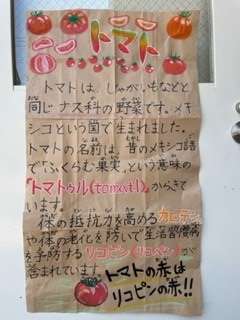 トマト
トマトは、じゃがいもなどと
同じナス科の野菜です。メキ
シコという国で生まれました。
トマトの名前は、昔のメキシコ語
で「ふくらむ果実」という意味の
「トマトゥル(tomatl)」からきて
います。
体の抵抗力を高めるカロテン
や体の老化を防いで生活習慣病
を予防するリコピン(リコペン)が
含まれています。
トマトの赤は
リコピンの赤!!